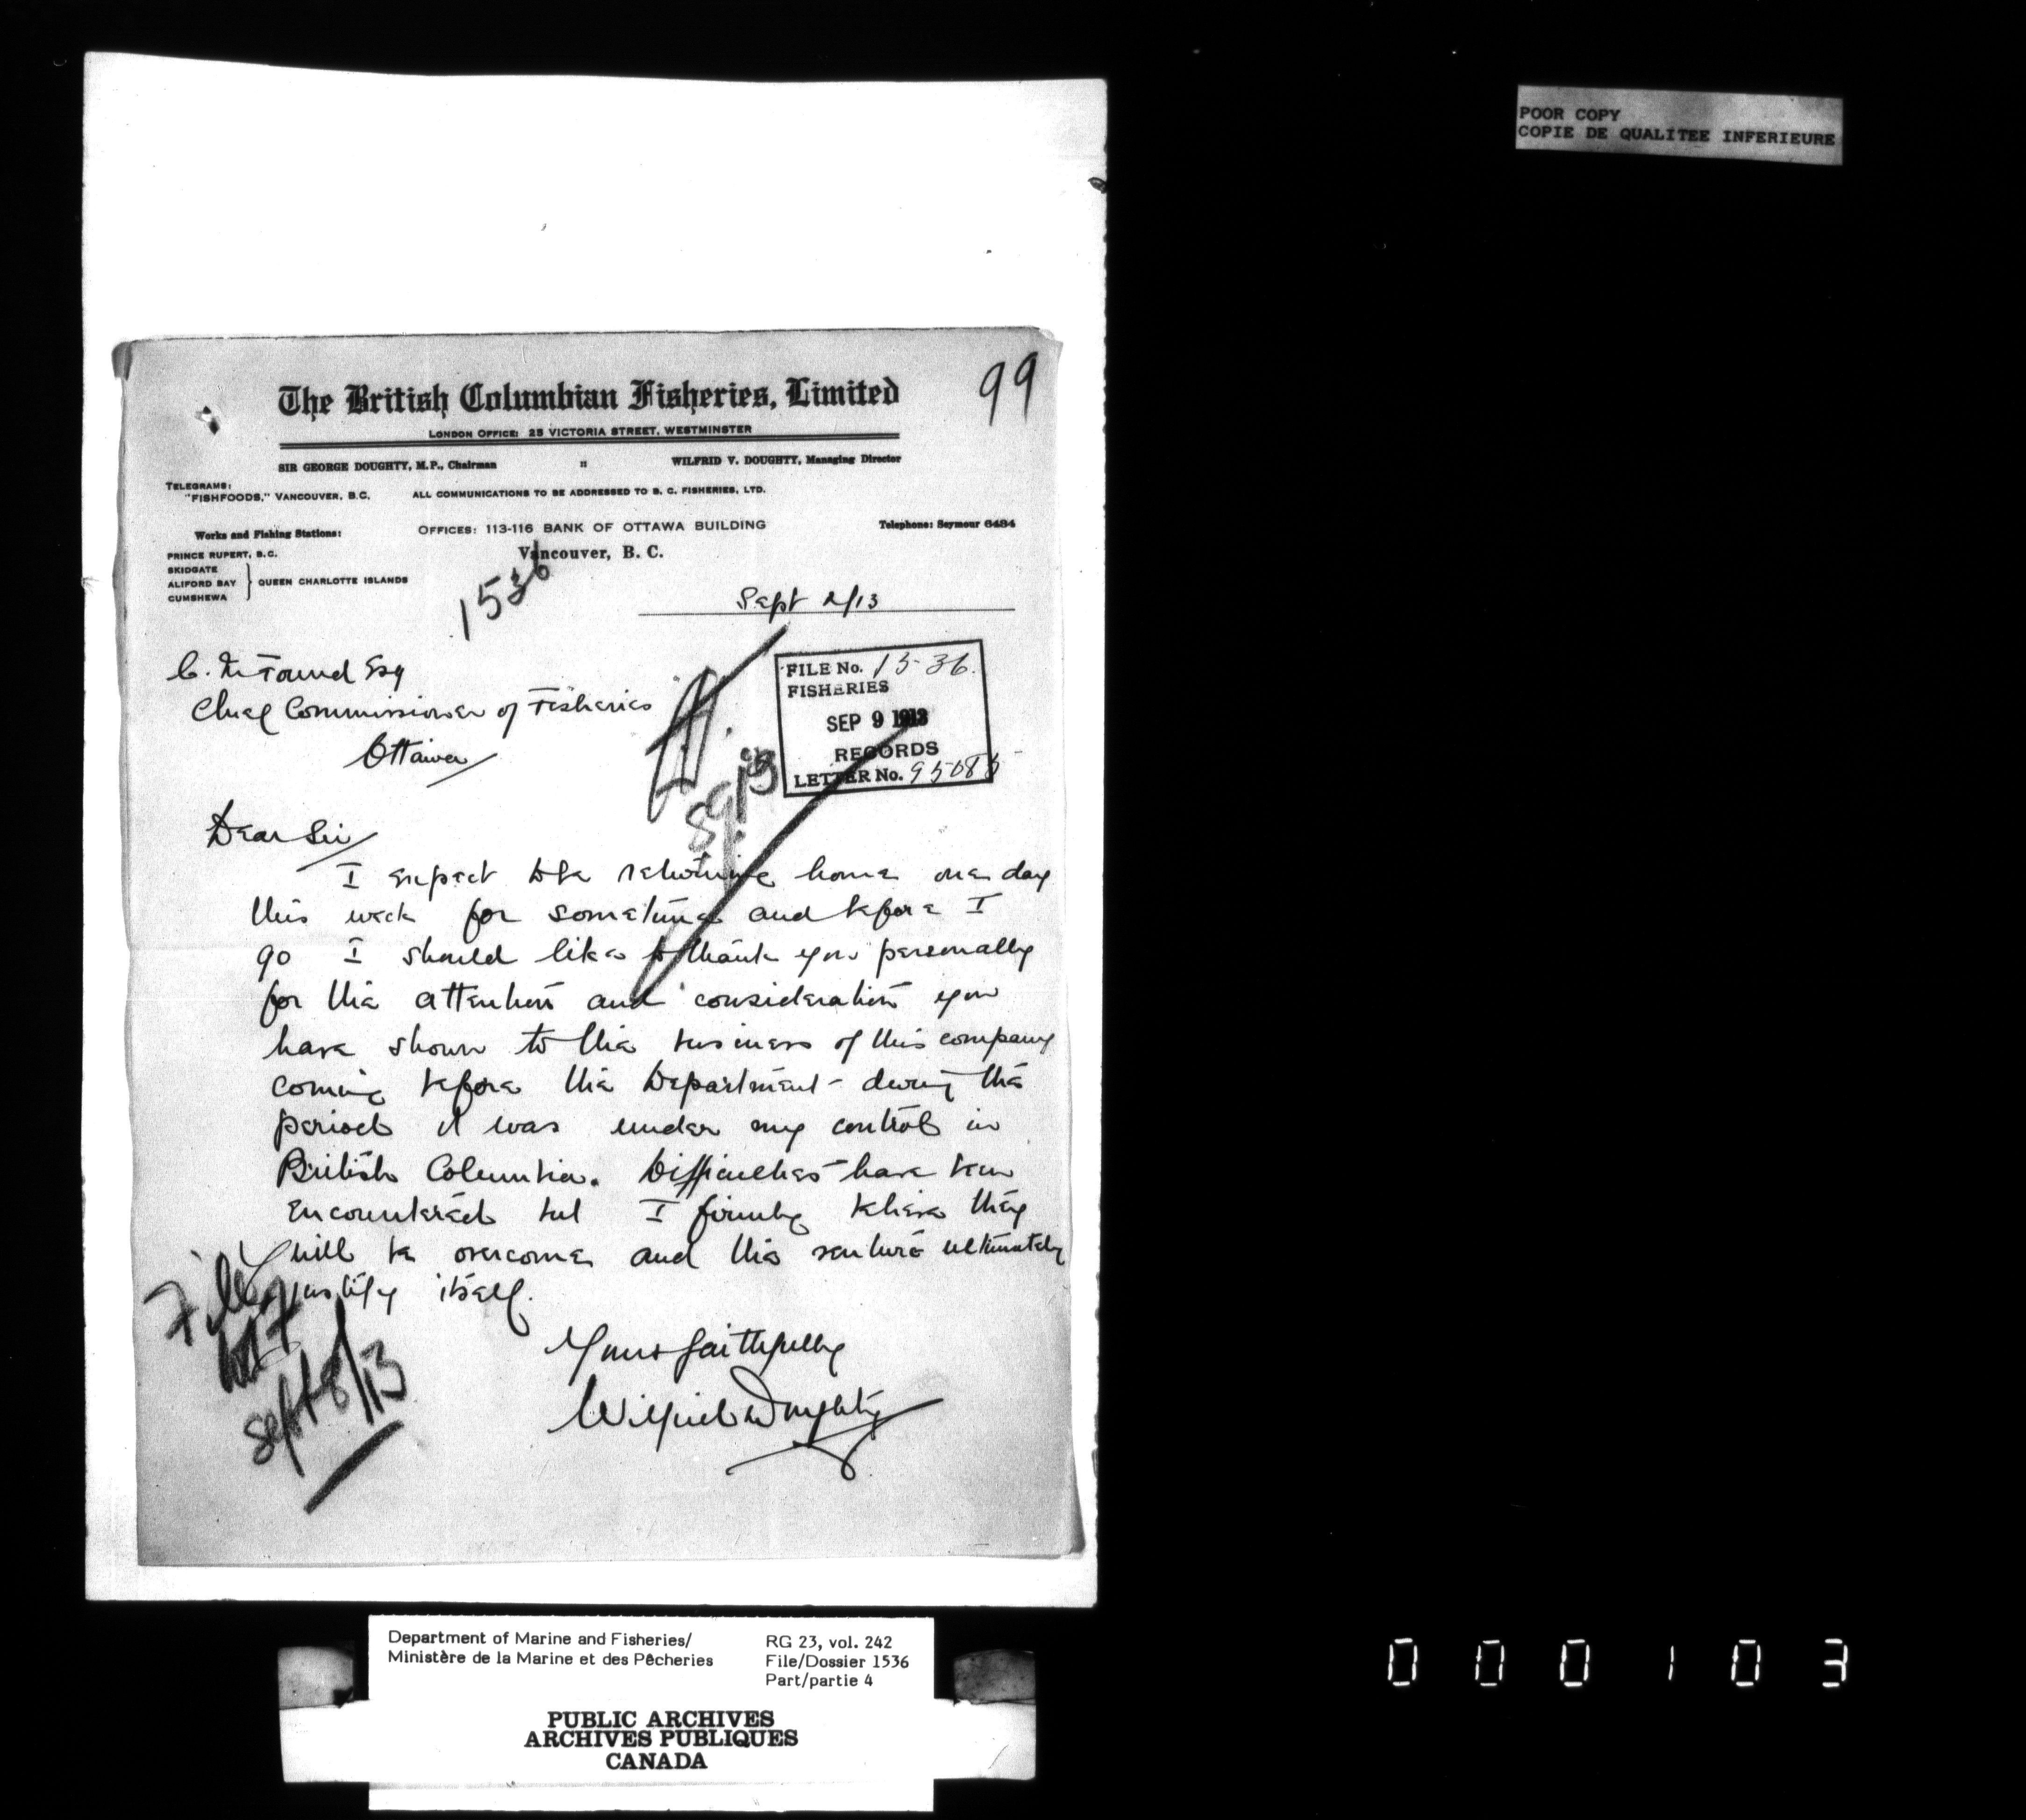 POOR COPY
COPIE DE QUALITEE INFERIEURE
99
The British Columbian Fisheries, Limited
LONDON OFFICE: 25 VICTORIA STREET, WESTMINSTER
SIR GEORGE DOUGHTY, M.P., Chairman " WILFRID V. DOUGHTY, Managing Director
TELEGRAMS:
"FISHFOODS," VANCOUVER, B.C. ALL COMMUNICATIONS TO BE ADDRESSED TO B. C. FISHERIES, LTD.
Works and Fishing Stations: OFFICES: 113-116 BANK OF OTTAWA BUILDING Telephone: Seymour 6484
Vancouver, B. C.
PRINCE RUPERT, B.C.
SKIDGATE
ALIFORD BAY QUEEN CHARLOTTE ISLANDS
CUMSHEWA
1536
Sept 2/13
FILE No. 1536.
FISHERIES
SEP 9 1913
RECORDS
LETTER No.
Found Esq
Chief Commissioner of Fisheries
Ottawa
8.9.13
Dear Sir
I expect to be returning home one day
this week for sometime and before I
go I should like to thank you personally
for the attention and consideration you
have shown to the business of this company
coming before the Department during the
period it was under my control in
British Columbia. Difficulties have been
encountered but I firmly believe they
will be overcome and the venture ultimately
justify itself.
Yours faithfully
Wilfrid Doughty
File
Sept 8/13
Department of Marine and Fisheries/ RG 23, vol. 242
Ministère de la Marine et des Pêcheries File/Dossier 1536
Part/partie 4
PUBLIC ARCHIVES
ARCHIVES PUBLIQUES
CANADA
000103